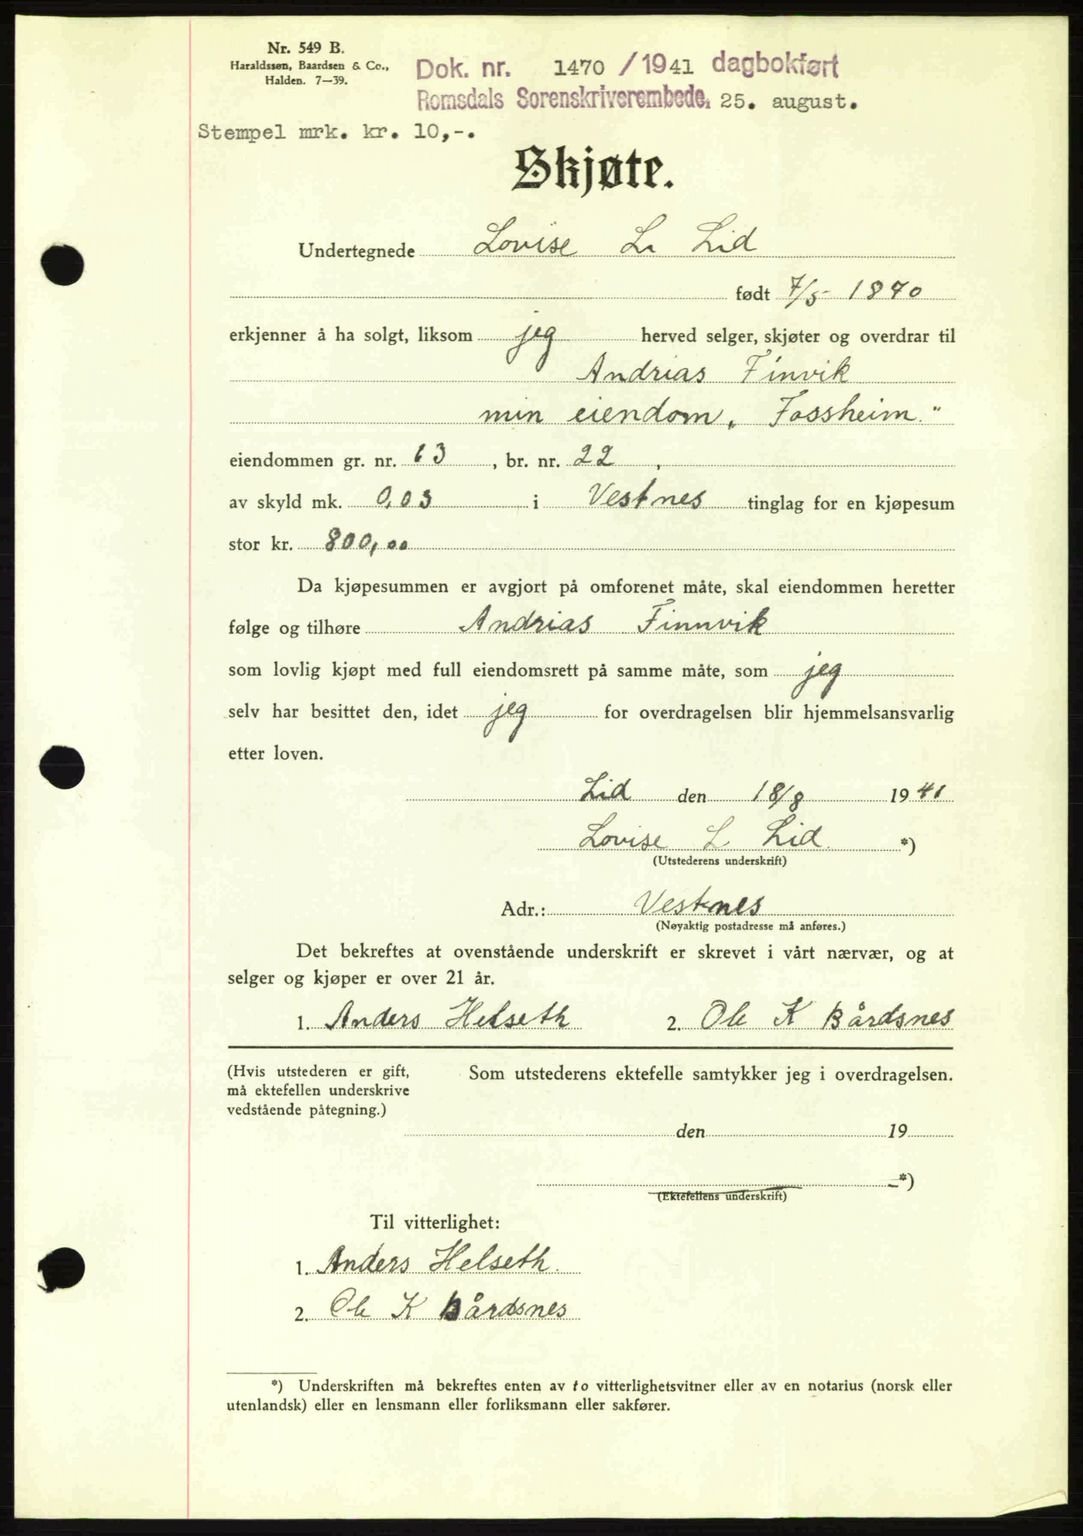 Nr. 549 B.
Haraldssen, Baardsen & Co.,
Halden. 7—39.
Dok. nr. 1470 / 1941 dagbokført
Romsdals Sorenskriverembede, 25. august.
Stempel mrk. kr. 10,-.
Skjøte.
Undertegnede Lovise L. Lid
født 7/5- 1870
erkjenner å ha solgt, liksom jeg herved selger, skjøter og overdrar til
Andrias Finvik
min eiendom „Fossheim."
eiendommen gr. nr. 63, br. nr. 22,
av skyld mk. 0,03 i Vestnes tinglag for en kjøpesum
stor kr. 800,00
Da kjøpesummen er avgjort på omforenet måte, skal eiendommen heretter
følge og tilhøre Andrias Finnvik
som lovlig kjøpt med full eiendomsrett på samme måte, som jeg
selv har besittet den, idet jeg for overdragelsen blir hjemmelsansvarlig
etter loven.
Lid den 18/8 1941
Lovise L Lid. *)
(Utstederens underskrift)
Adr.: Vestnes
(Nøyaktig postadresse må anføres.)
Det bekreftes at ovenstående underskrift er skrevet i vårt nærvær, og at
selger og kjøper er over 21 år.
1. Anders Helseth 2. Ole K Bårdsnes
(Hvis utstederen er gift, Som utstederens ektefelle samtykker jeg i overdragelsen.
må ektefellen underskrive
vedstående påtegning.)
den 19
*)
(Ektefellens underskrift)
Til vitterlighet:
1. Anders Helseth.
2. Ole K Bårdsnes
*) Underskriften må bekreftes enten av to vitterlighetsvitner eller av en notarius (norsk eller
utenlandsk) eller en lensmann eller forliksmann eller sakfører.